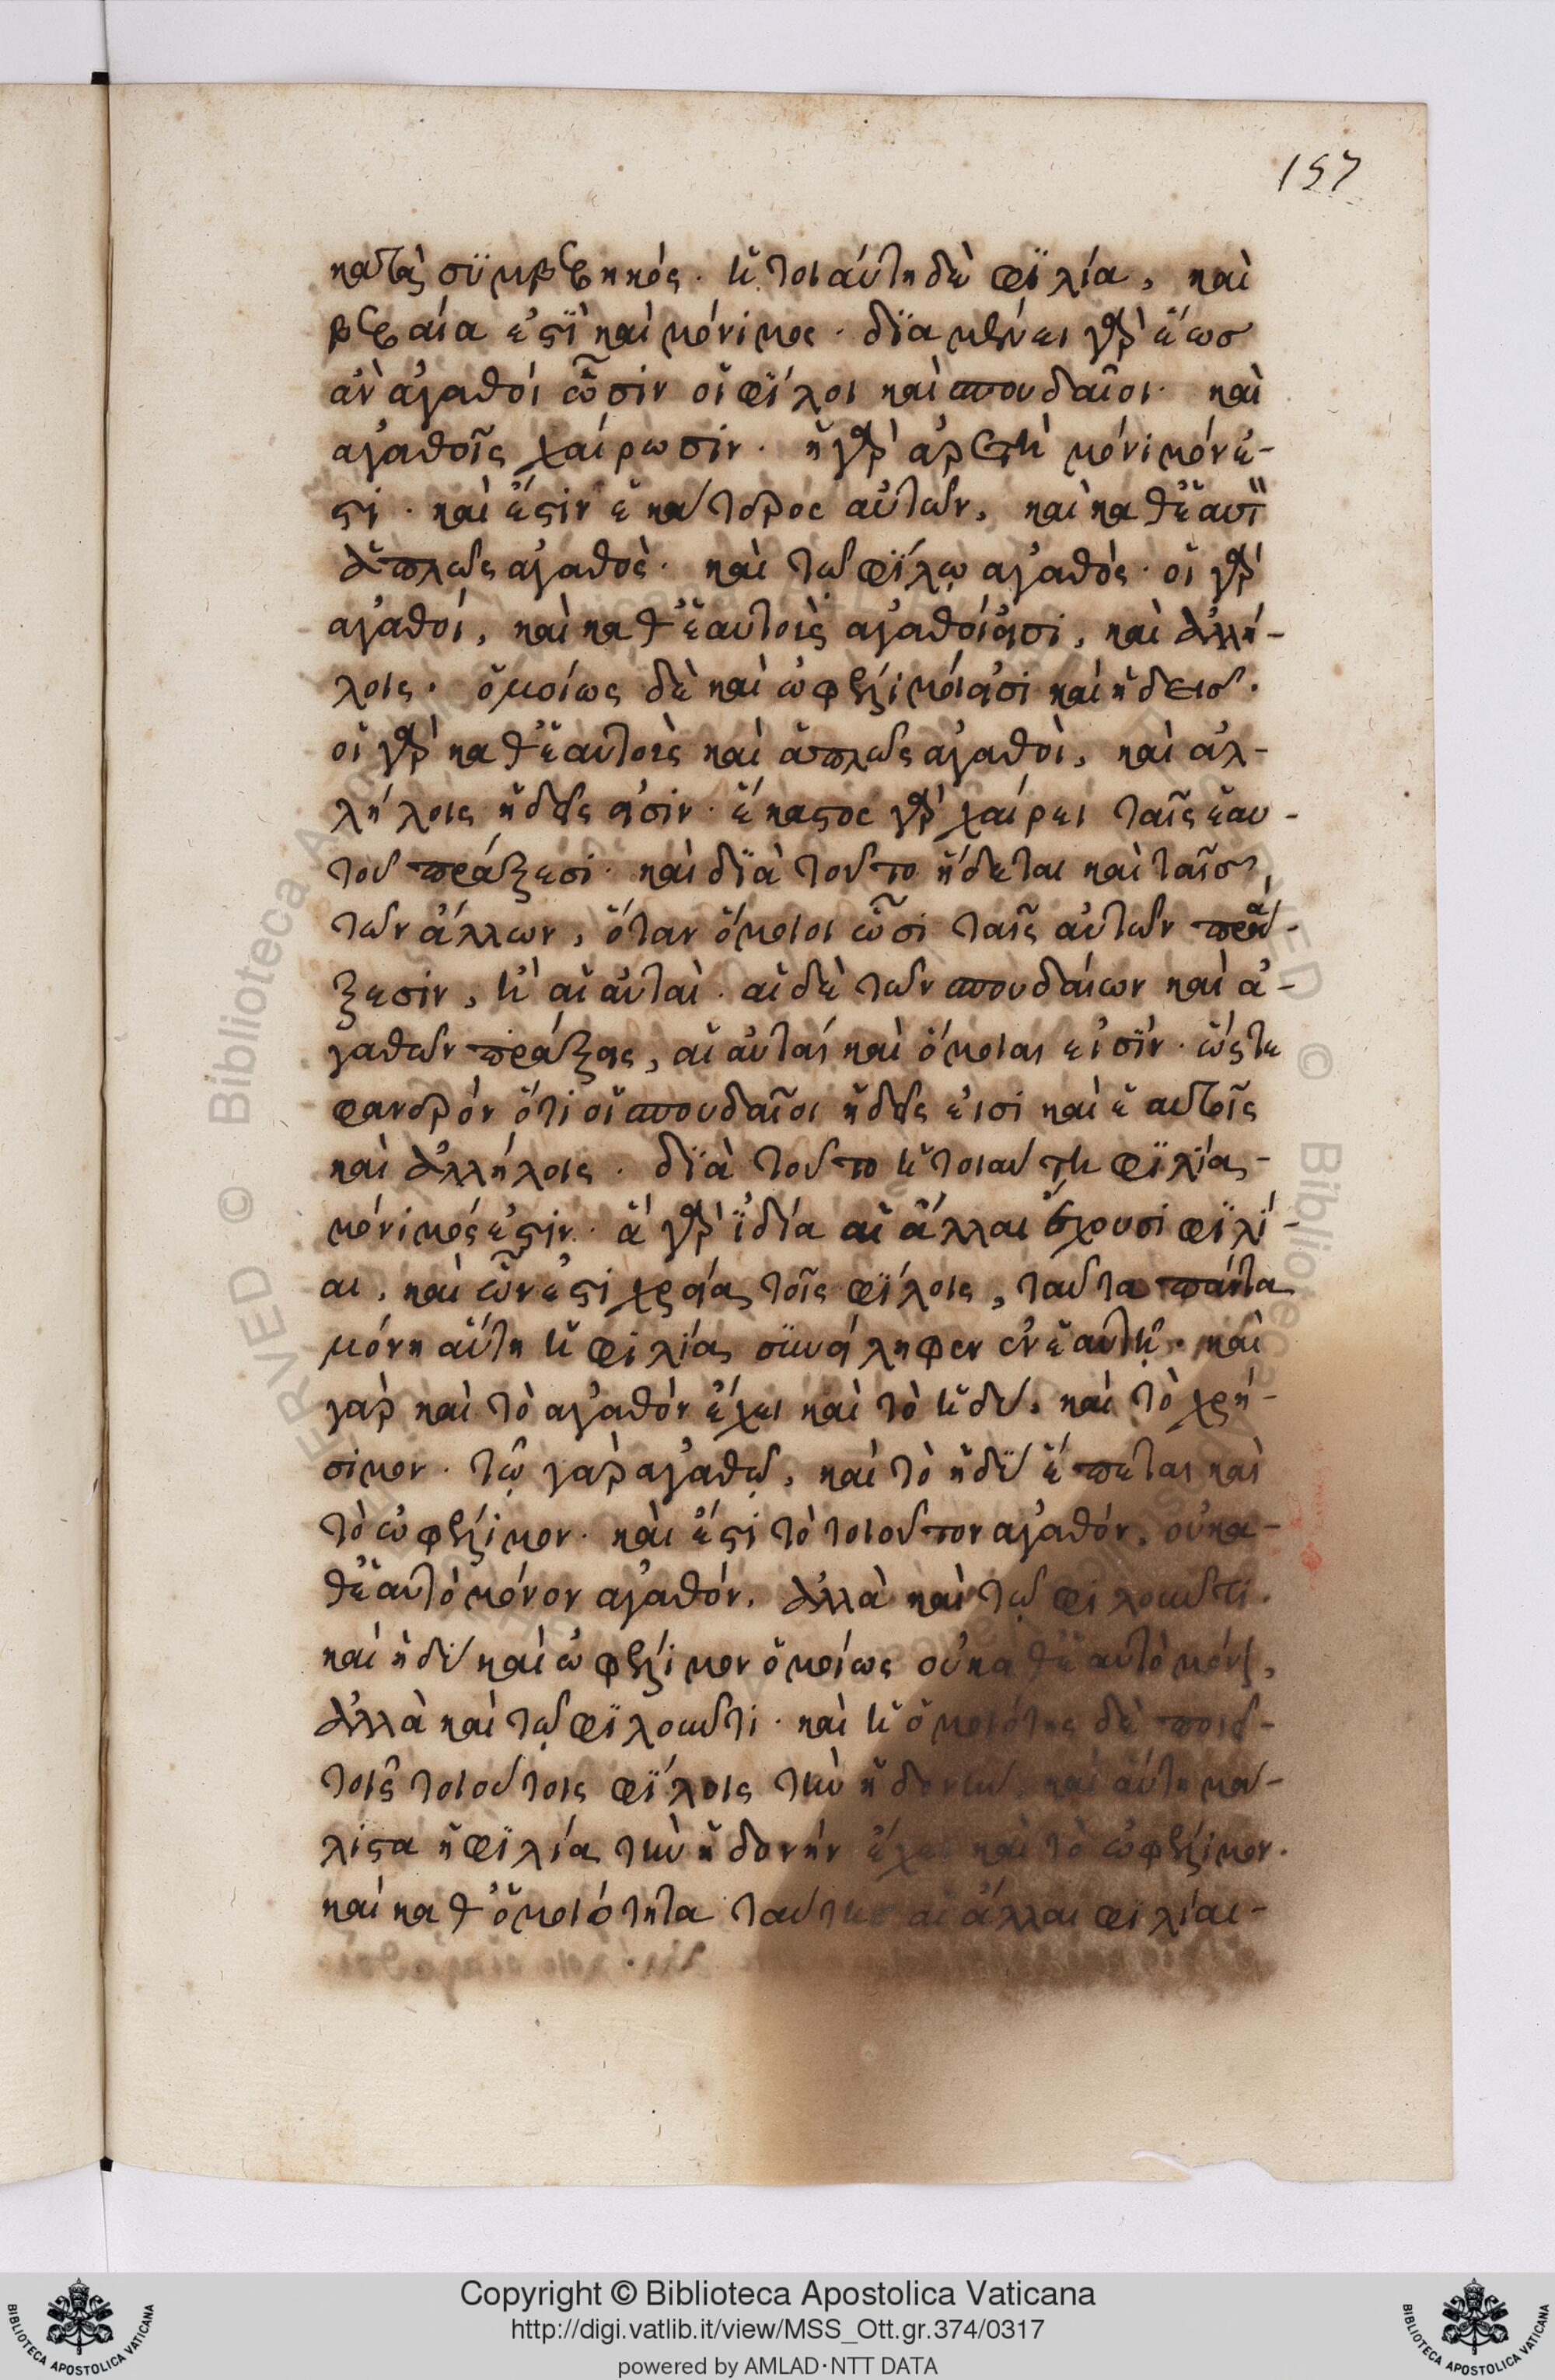 157
κατὰ συμβεβηκός. ἡ τοιαύτη δὲ φιλία, καὶ
βεβαία ἐστὶ καὶ μόνιμος. διαμένει γὰρ ἕως
ἂν ἀγαθοὶ ὦσιν οἱ φίλοι καὶ σπουδαῖοι. καὶ
ἀγαθοῖς χαίρωσιν. ἡ γὰρ ἀρετὴ μόνιμόν ἐ-
στι. καὶ ἔστιν ἑκάτερος αὐτῶν, καὶ καθ' ἑαυτὸν
ἁπλῶς ἀγαθὸς. καὶ τῷ φίλῳ ἀγαθός. οἱ γὰρ
ἀγαθοί, καὶ καθ' ἑαυτοὺς ἀγαθοί εἰσι, καὶ ἀλλή-
λοις. ὁμοίως δὲ καὶ ὠφέλιμοί εἰσι καὶ ἡδεῖς.
οἱ γὰρ καθ' ἑαυτοὺς καὶ ἁπλῶς ἀγαθοὶ, καὶ ἀλ-
λήλοις ἡδεῖς εἰσιν. ἕκαστος γὰρ χαίρει ταῖς ἑαυ-
τοῦ πράξεσι. καὶ διὰ τοῦτο ἥδεται καὶ ταῖς
τῶν ἄλλων, ὅταν ὅμοιοι ὦσι ταῖς αὐτῶν πρά-
ξεσιν, ἢ αἱ αὐταὶ. αἱ δὲ τῶν σπουδαίων καὶ ἀ-
γαθῶν πράξεις, αἱ αὐταί καὶ ὅμοιαι εἰσίν. ὥστε
φανερόν ὅτι οἱ σπουδαῖοι ἡδεῖς εἰσι καὶ ἑαυτοῖς
καὶ ἀλλήλοις. διὰ τοῦτο ἡ τοιαύτη φιλία-
μόνιμός ἐστιν. ἃ γὰρ ἰδία αἱ ἄλλαι ἔχουσι φιλί-
αι, καὶ ὧν ἐστι χρεία τοῖς φίλοις, ταῦτα πάντα
μόνη αὕτη ἡ φιλία συνείληφεν ἐν ἑαυτῇ. καὶ
γὰρ καὶ τὸ ἀγαθόν ἔχει καὶ τὸ ἡδύ, καὶ τὸ χρή-
σιμον. τῷ γὰρ ἀγαθῷ, καὶ τὸ ἡδύ ἕπεται καὶ
τὸ ὠφέλιμον. καὶ ἔστι τὸ τοιοῦτον ἀγαθόν, οὐ κα-
θ' ἑαυτὸ μόνον ἀγαθόν, ἀλλὰ καὶ τῷ φιλοῦντι.
καὶ ἡδύ καὶ ὠφέλιμον ὁμοίως οὐ καθ' ἑαυτὸ μόνον,
ἀλλὰ καὶ τῷ φιλοῦντι. καὶ ἡ ὁμοιότης δὲ ποιεῖ-
τοῖς τοιούτοις φίλοις τὴν ἡδονήν. καὶ αὕτη μά-
λιστα ἡ φιλία τὴν ἡδονήν ἔχει καὶ τὸ ὠφέλιμον.
καὶ καθ' ὁμοιότητα ταύτης αἱ ἄλλαι φιλίαι-
Copyright © Biblioteca Apostolica Vaticana
http://digi.vatlib.it/view/MSS_Ott.gr.374/0317
powered by AMLAD·NTT DATA
BIBLIOTECA APOSTOLICA VATICANA
BIBLIOTECA APOSTOLICA VATICANA